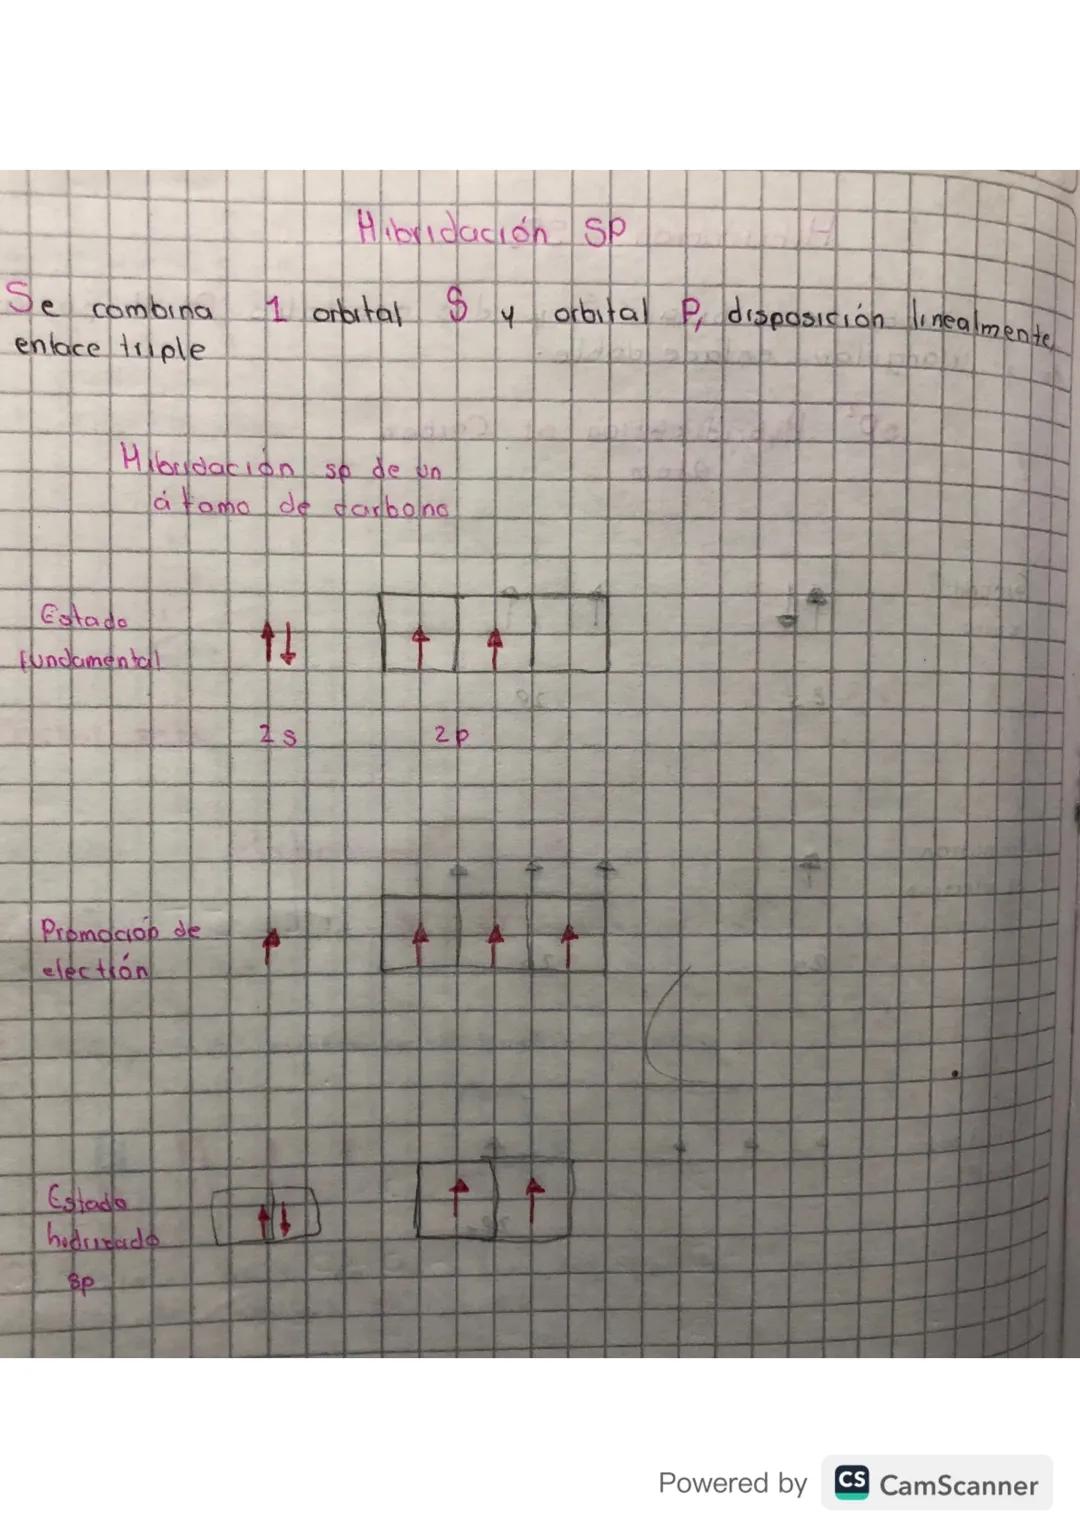 Hibridación SP
Se combina 1 orbital S y orbital P, disposición linealmente
enlace triple
Hibridación sp de un
átomo de carbono
Estado
fundamental
2s 2p
Promoción de
electrón
Estado
sp
Powered by CS CamScanner